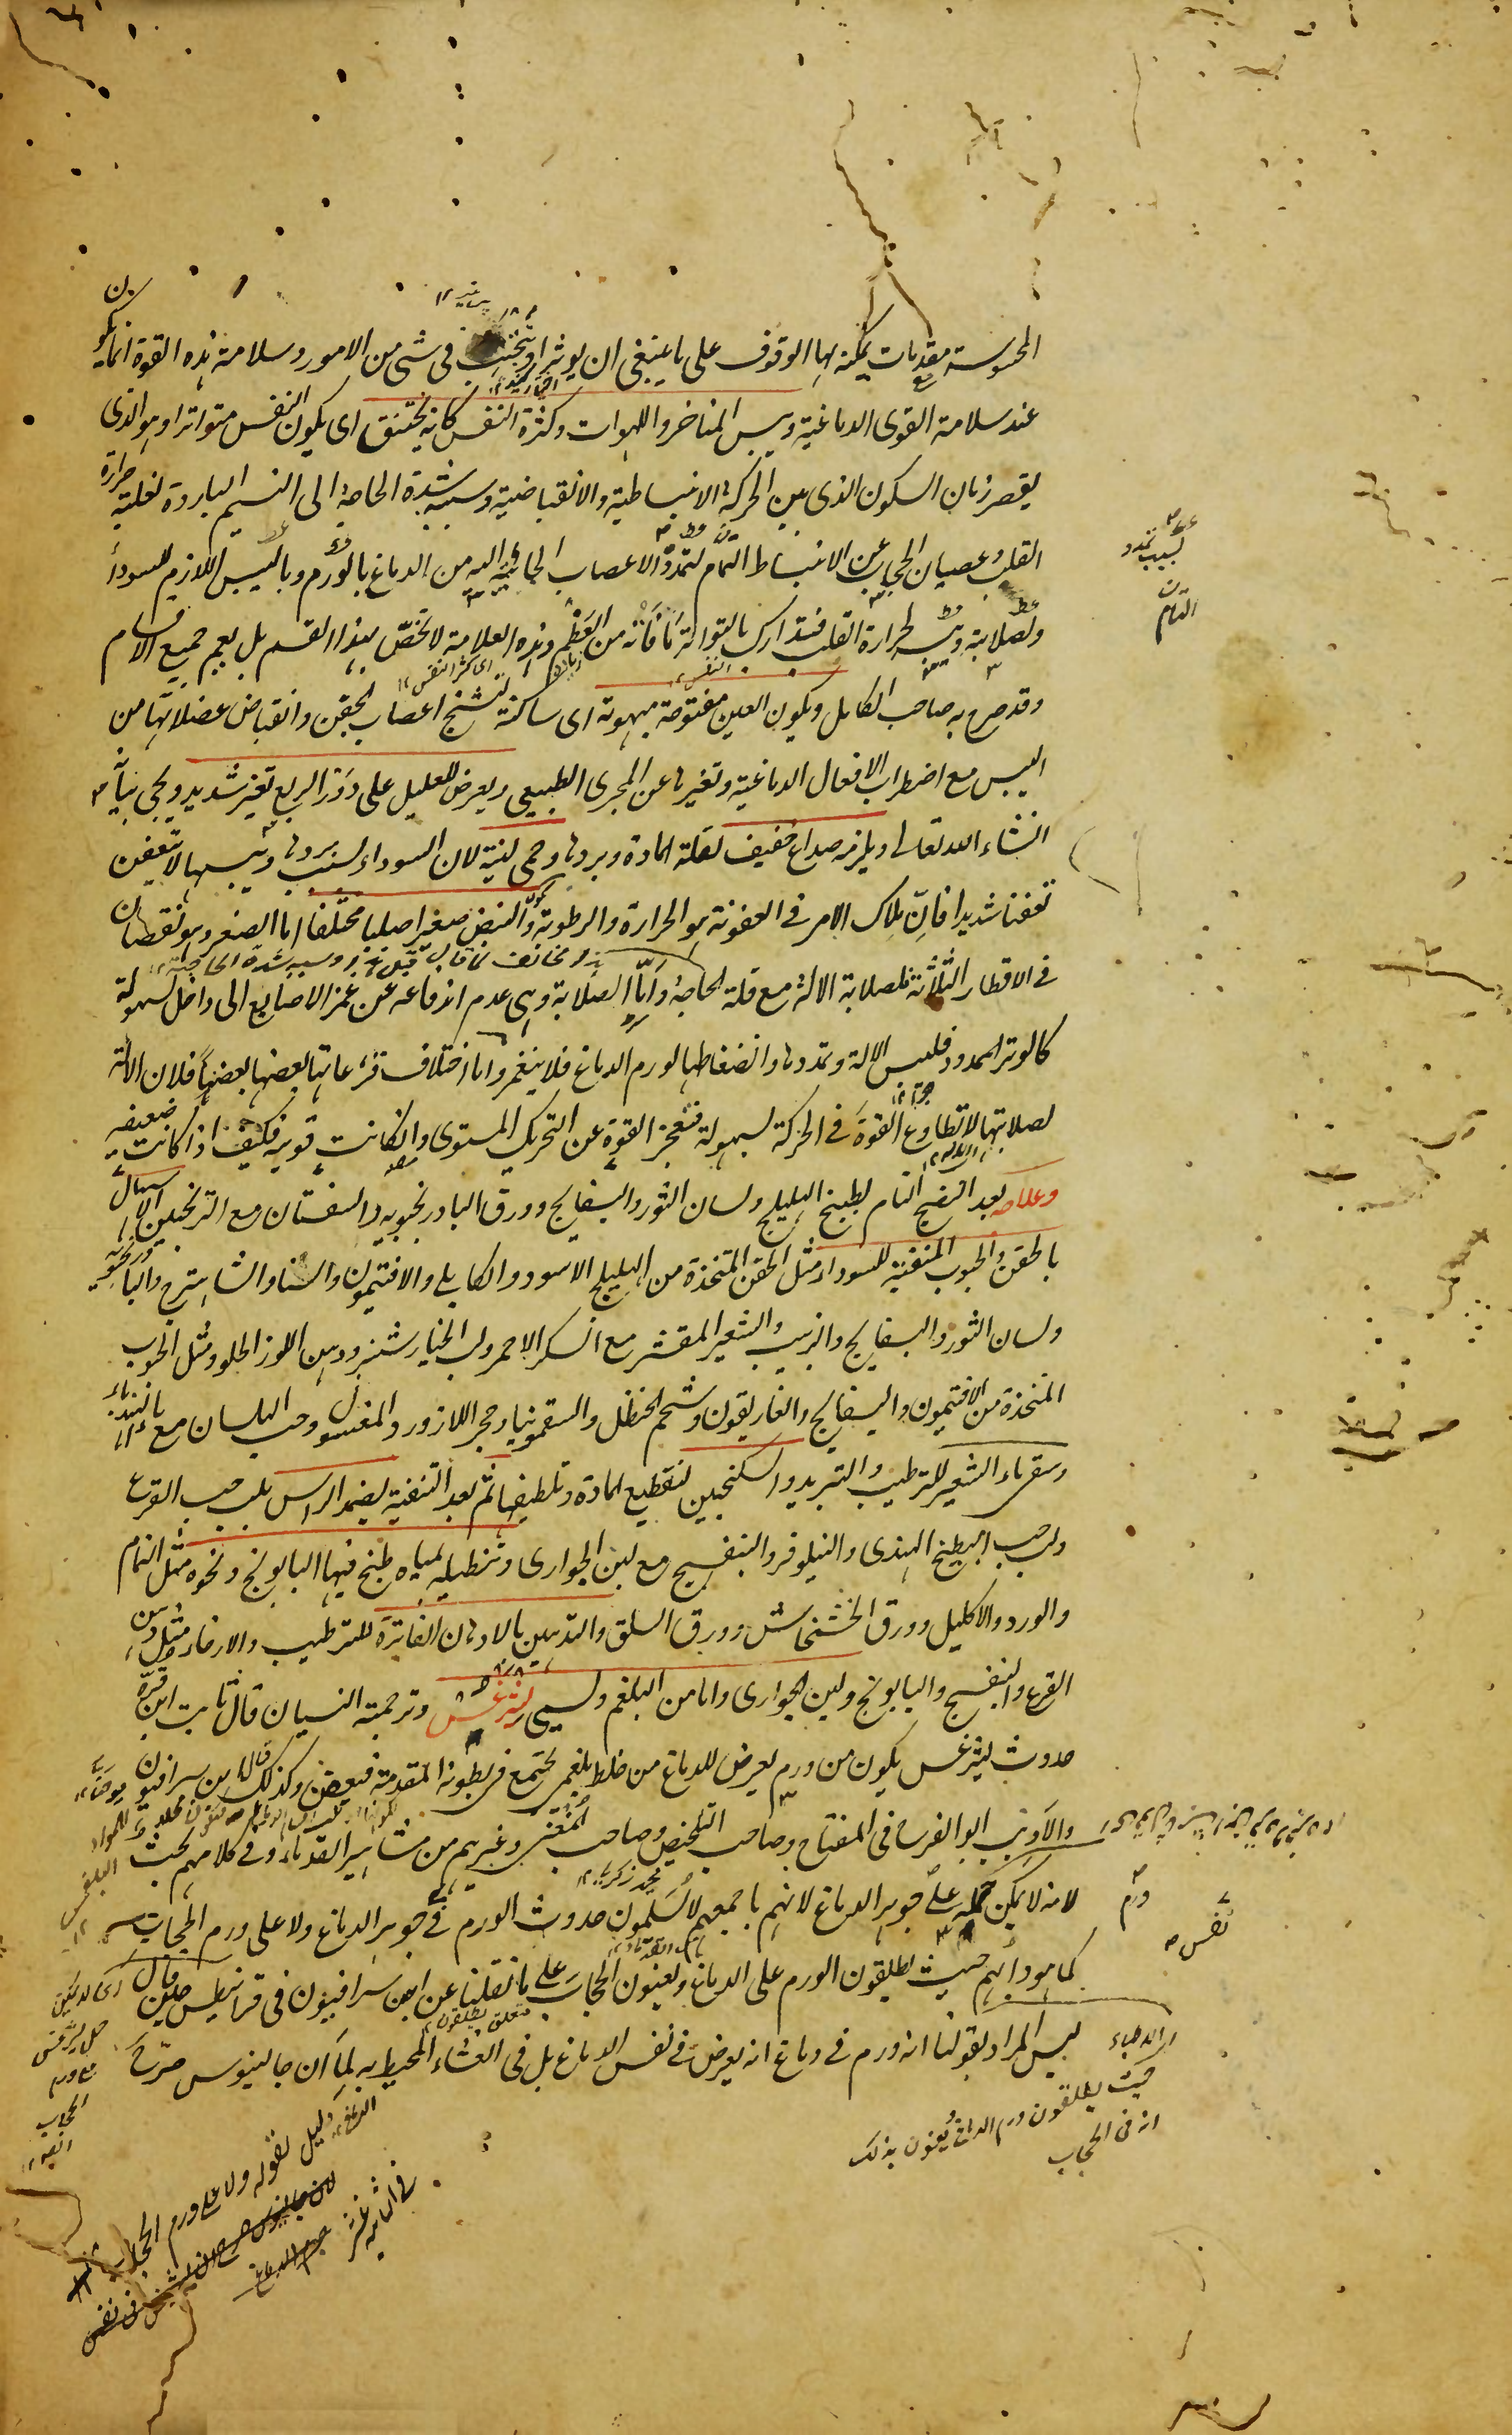 المحسوسة مقدمات يمكنه بها الوقوف على ما ينبغى ان يوثر او يتجنب فى شى من الامور وسلامة هذه القوة انما يكون
عند سلامة القوى الدماغية ويبس المناخر واللهوات وكثرة النفس كانه يختنق اى يكون النفس متواترا وهو الذى
يقصر زمان السكون الذى بين الحركة الانبساطية والانقباضية وسببه شدة الحاجة الى النسيم البارد لغلبة حرارة
القلب وعصيان الحجاب عن الانبساط التام لتمدد الاعصاب الجائية اليه من الدماغ بالورم وباليبس اللازم للسوداء
ولصلابته لحرارة القلب فيتدارك بالتواتر ما فاته من العظم وهذه العلامة لا تختص بهذا القسم بل يعم جميع الاقسام
وقد صرح به صاحب الكامل ويكون العين مفتوحة مبهوتة اى ساكنة لتشنج اعصاب الجفن وانقباض عضلاتها من
اليبس مع اضطراب الافعال الدماغية وتغيرها عن المجرى الطبيعى ويعرض للعليل على دور الربع تغير شديد ويجئ بيانه
انشاء الله تعالى ويلزمه صداع خفيف لقلة المادة وبردها وحمى لينة لان السوداء لسبب بردها ويبسها لا يتعفن
تعفنا شديدا فان ملاك الامر فى العفونة هو الحرارة والرطوبة ويكون النبض صغيرا صلبا مختلفا اما الصغر وهو نقصان
فى الاقطار الثلثة فلصلابة الالة مع قلة الحاجة واما الصلابة وهى عدم اندفاعه عن غمز الاصابع الى داخل لسهولة
كالوتر الممدود فليبس الالة وتمددها وانضغاطها لورم الدماغ فلا ينغمز واما اختلاف قرعاتها بعضها بعضها فلان الالة
لصلابتها لا تطاوع القوة فى الحركة لسهولة فتعجز القوة عن التحريك المستوى وان كانت قوية فكيف اذا كانت ضعيفة
وعلاجه بعد النضج التام بطبيخ الهليلج ولسان الثور والبسفايج وورق البادرنجبويه والسفستان مع الترنجبين الاسهال
بالحقن والحبوب المنقية للسوداء مثل الحقن المتخذة من الهليلج الاسود والكابلى والافتيمون والسنا والشاهترج والبادرنجبويه
ولسان الثور والبسفايج والزبيب والشعير المقشر مع السكر الاحمر ولب الخيارشنبر ودهن اللوز الحلو ومثل الحبوب
المتخذة من الافتيمون والبسفايج والغاريقون وشحم الحنظل والسقمونيا وحجر اللازورد المغسول وحب البلسان مع ماء الهندباء
وسقى ماء الشعير للترطيب والتبريد والسكنجبين لتقطيع المادة وتلطيفها ثم بعد التنقية يضمد الراس بلب حب القرع
ولب حب البطيخ الهندى والنيلوفر والبنفسج مع لبن الجوارى وتنطيله بمياه طبخ فيها البابونج ونحوه مثل النمام
والورد والاكليل وورق الخشخاش وورق السلق والتدهين بالادهان الفاترة للترطيب والارخاء مثل دهن
القرع والبنفسج والبابونج ولبن الجوارى واما من البلغم ويسمى ليثرغس وترجمته النسيان قال ثابت ابن قرة
حدوث ليثرغس يكون من ورم يعرض للدماغ من خلط بلغمى يجتمع فى بطونه المقدمة فيعفن وكذلك قال ابن سرافيون
والاديب ابو الفرج فى المفتاح وصاحب التلخيص وصاحب المغنى وغيرهم من مشاهير القدماء وفى كلامهم بحث
لانه لا يمكن حمله على جوهر الدماغ لانهم باجمعهم لا يسلمون حدوث الورم فى جوهر الدماغ ولا على ورم الحجاب
كما هو دابهم حيث يطلقون الورم على الدماغ ويعنون الحجاب على ما نقلنا عن ابن سرافيون فى قرانيطس حين قال
ليس المراد بقولنا انه ورم فى دماغ انه يعرض فى نفس الدماغ بل فى الغشاء المحيط به لما ان جالينوس صرح
لسبب تمدد
التام
ورم
نفس
الاطباء
حيث يطلقون ورم الدماغ ويعنون بذلك
انه فى الحجاب
دليل لقوله ولا على ورم الحجاب